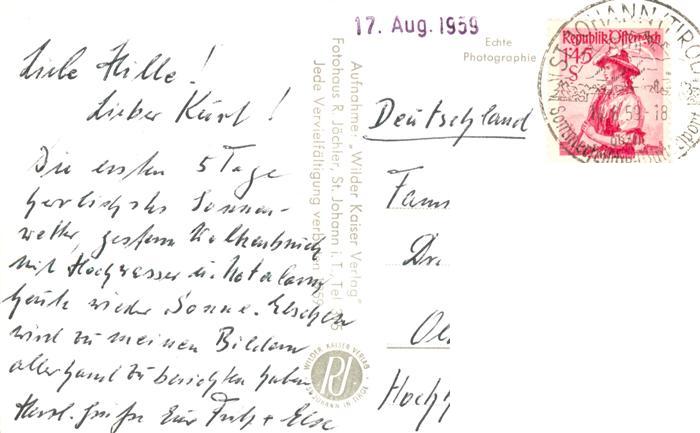 17. Aug. 1959
Echte
Photographie
Republik Österreich
1.45
S
ST. JOHANN (TIROL)
Liebe Hille!
Lieber Kurt!
Die ersten 5 Tage
herrlichstes Sonnen-
wetter, gestern Wolkenbruch
mit Hochwasser u. Notalarm
heute wieder Sonne. Elschen
wird zu meinen Bildern
allerhand zu berichten haben
Herzl. Grüße Eur Fritz + Else
Aufnahme: „Wilder Kaiser Verlag"
Fotohaus R. Jöchler, St. Johann i. T., Tel.
Jede Vervielfältigung verboten
WILDER KAISER VERLAG
ST. JOHANN IN TIROL
Deutschland
Fam
Dr.
Hoch